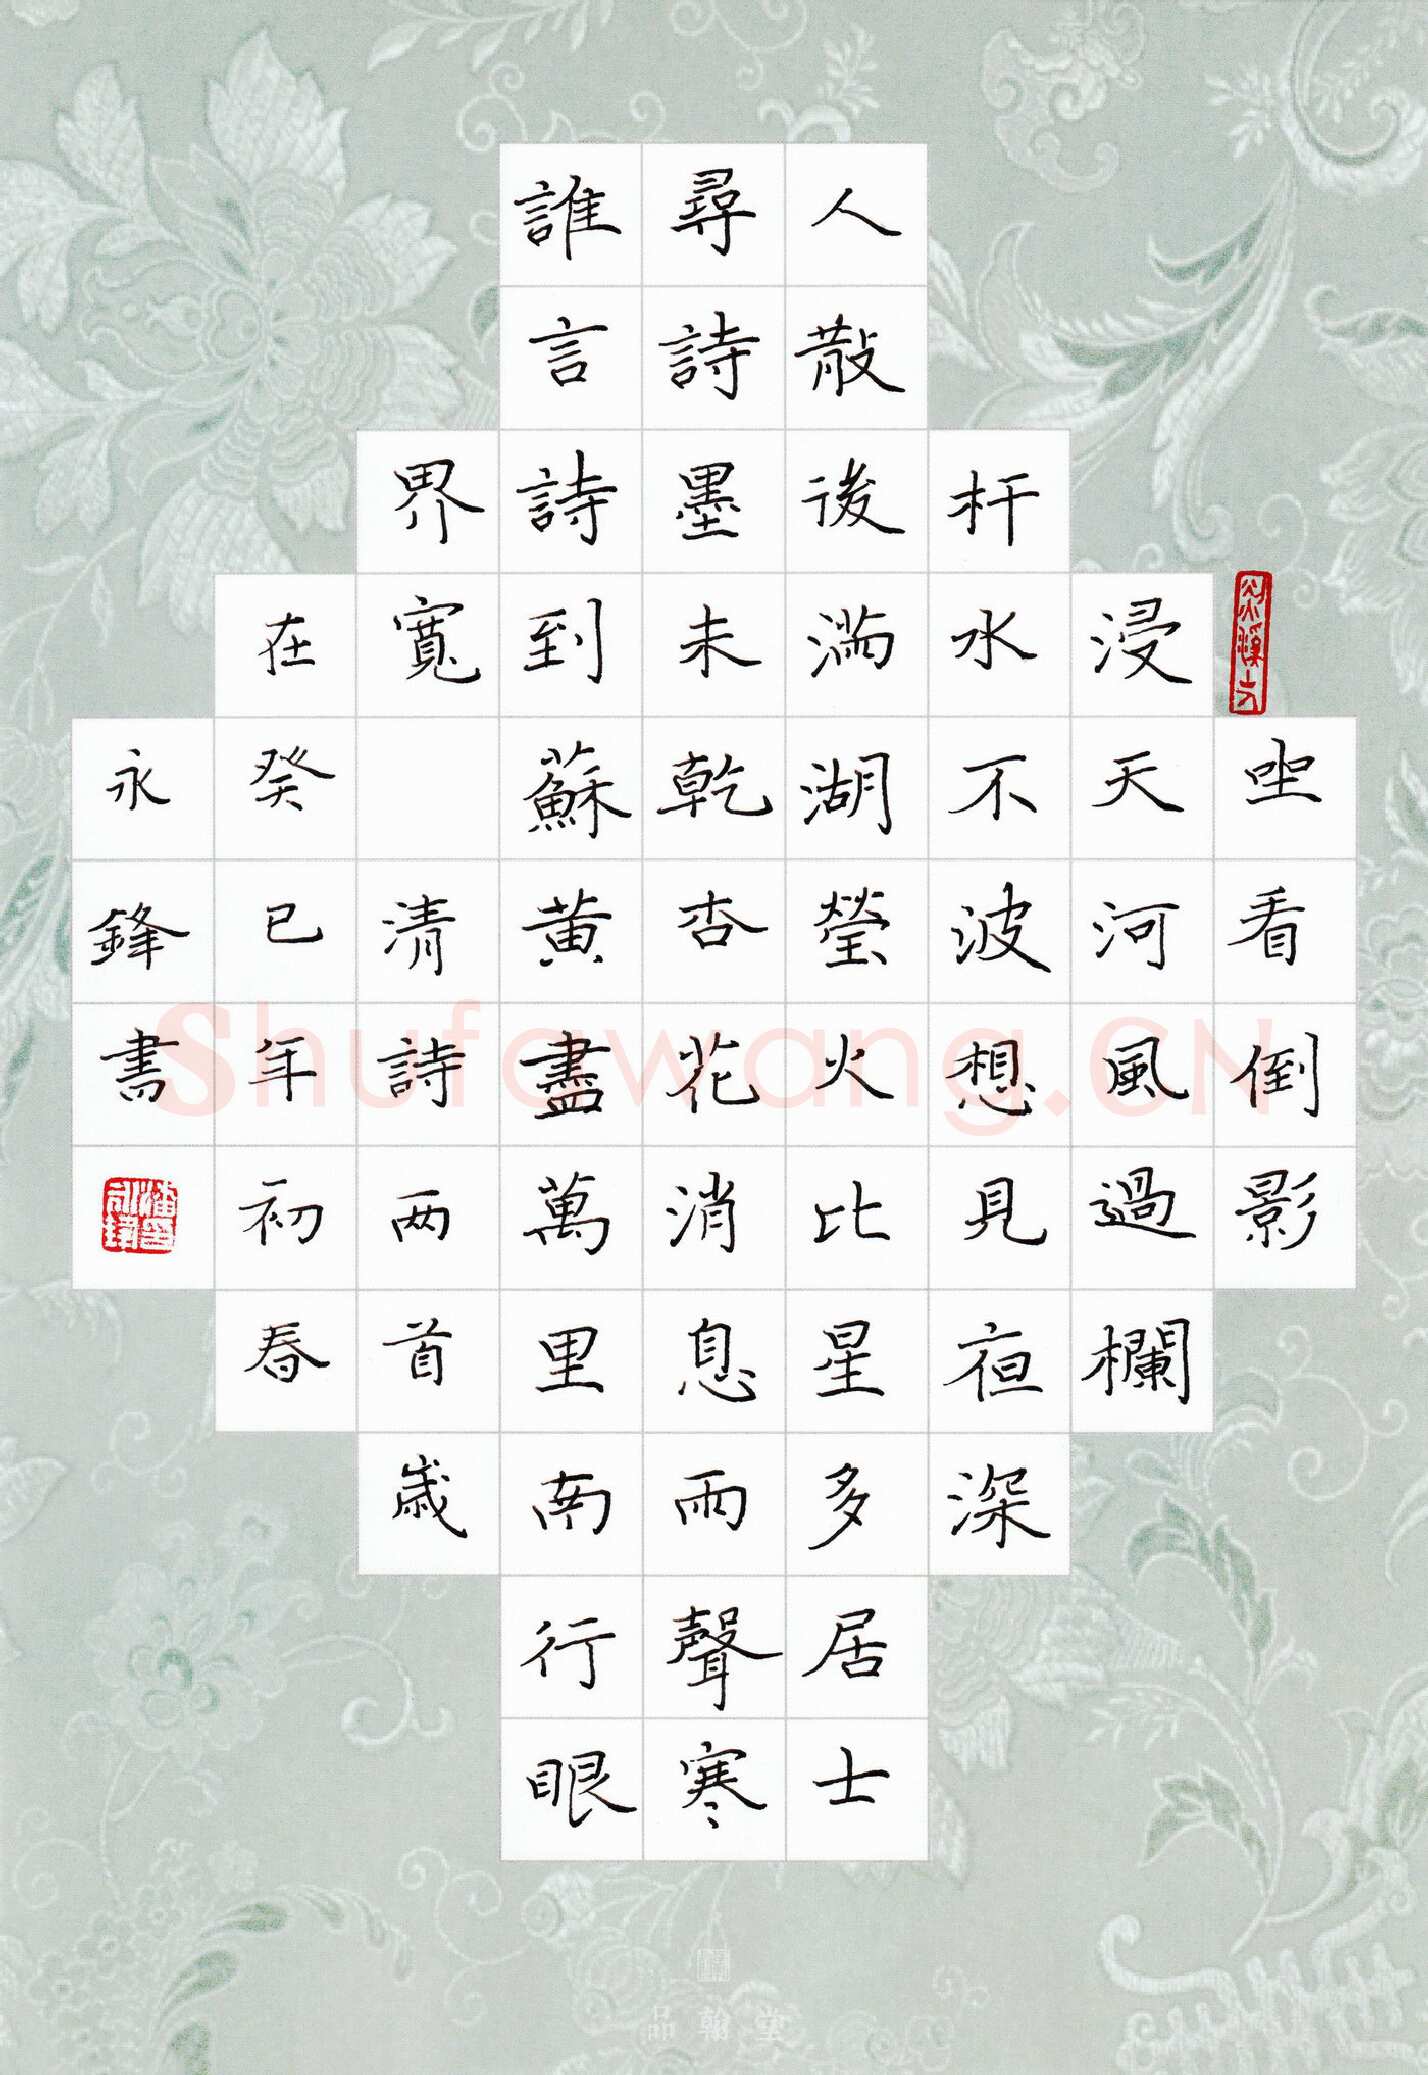 坐看倒影
浸天河風過欄
杆水不波想見夜深
人散後滿湖瑩火比星多居士
尋詩墨未乾杏花消息雨聲寒
誰言詩到蘇黃盡萬里南行眼
界寬 清詩两首歲
在癸巳年初春
永鋒書
Shufawang.CN
品翰堂